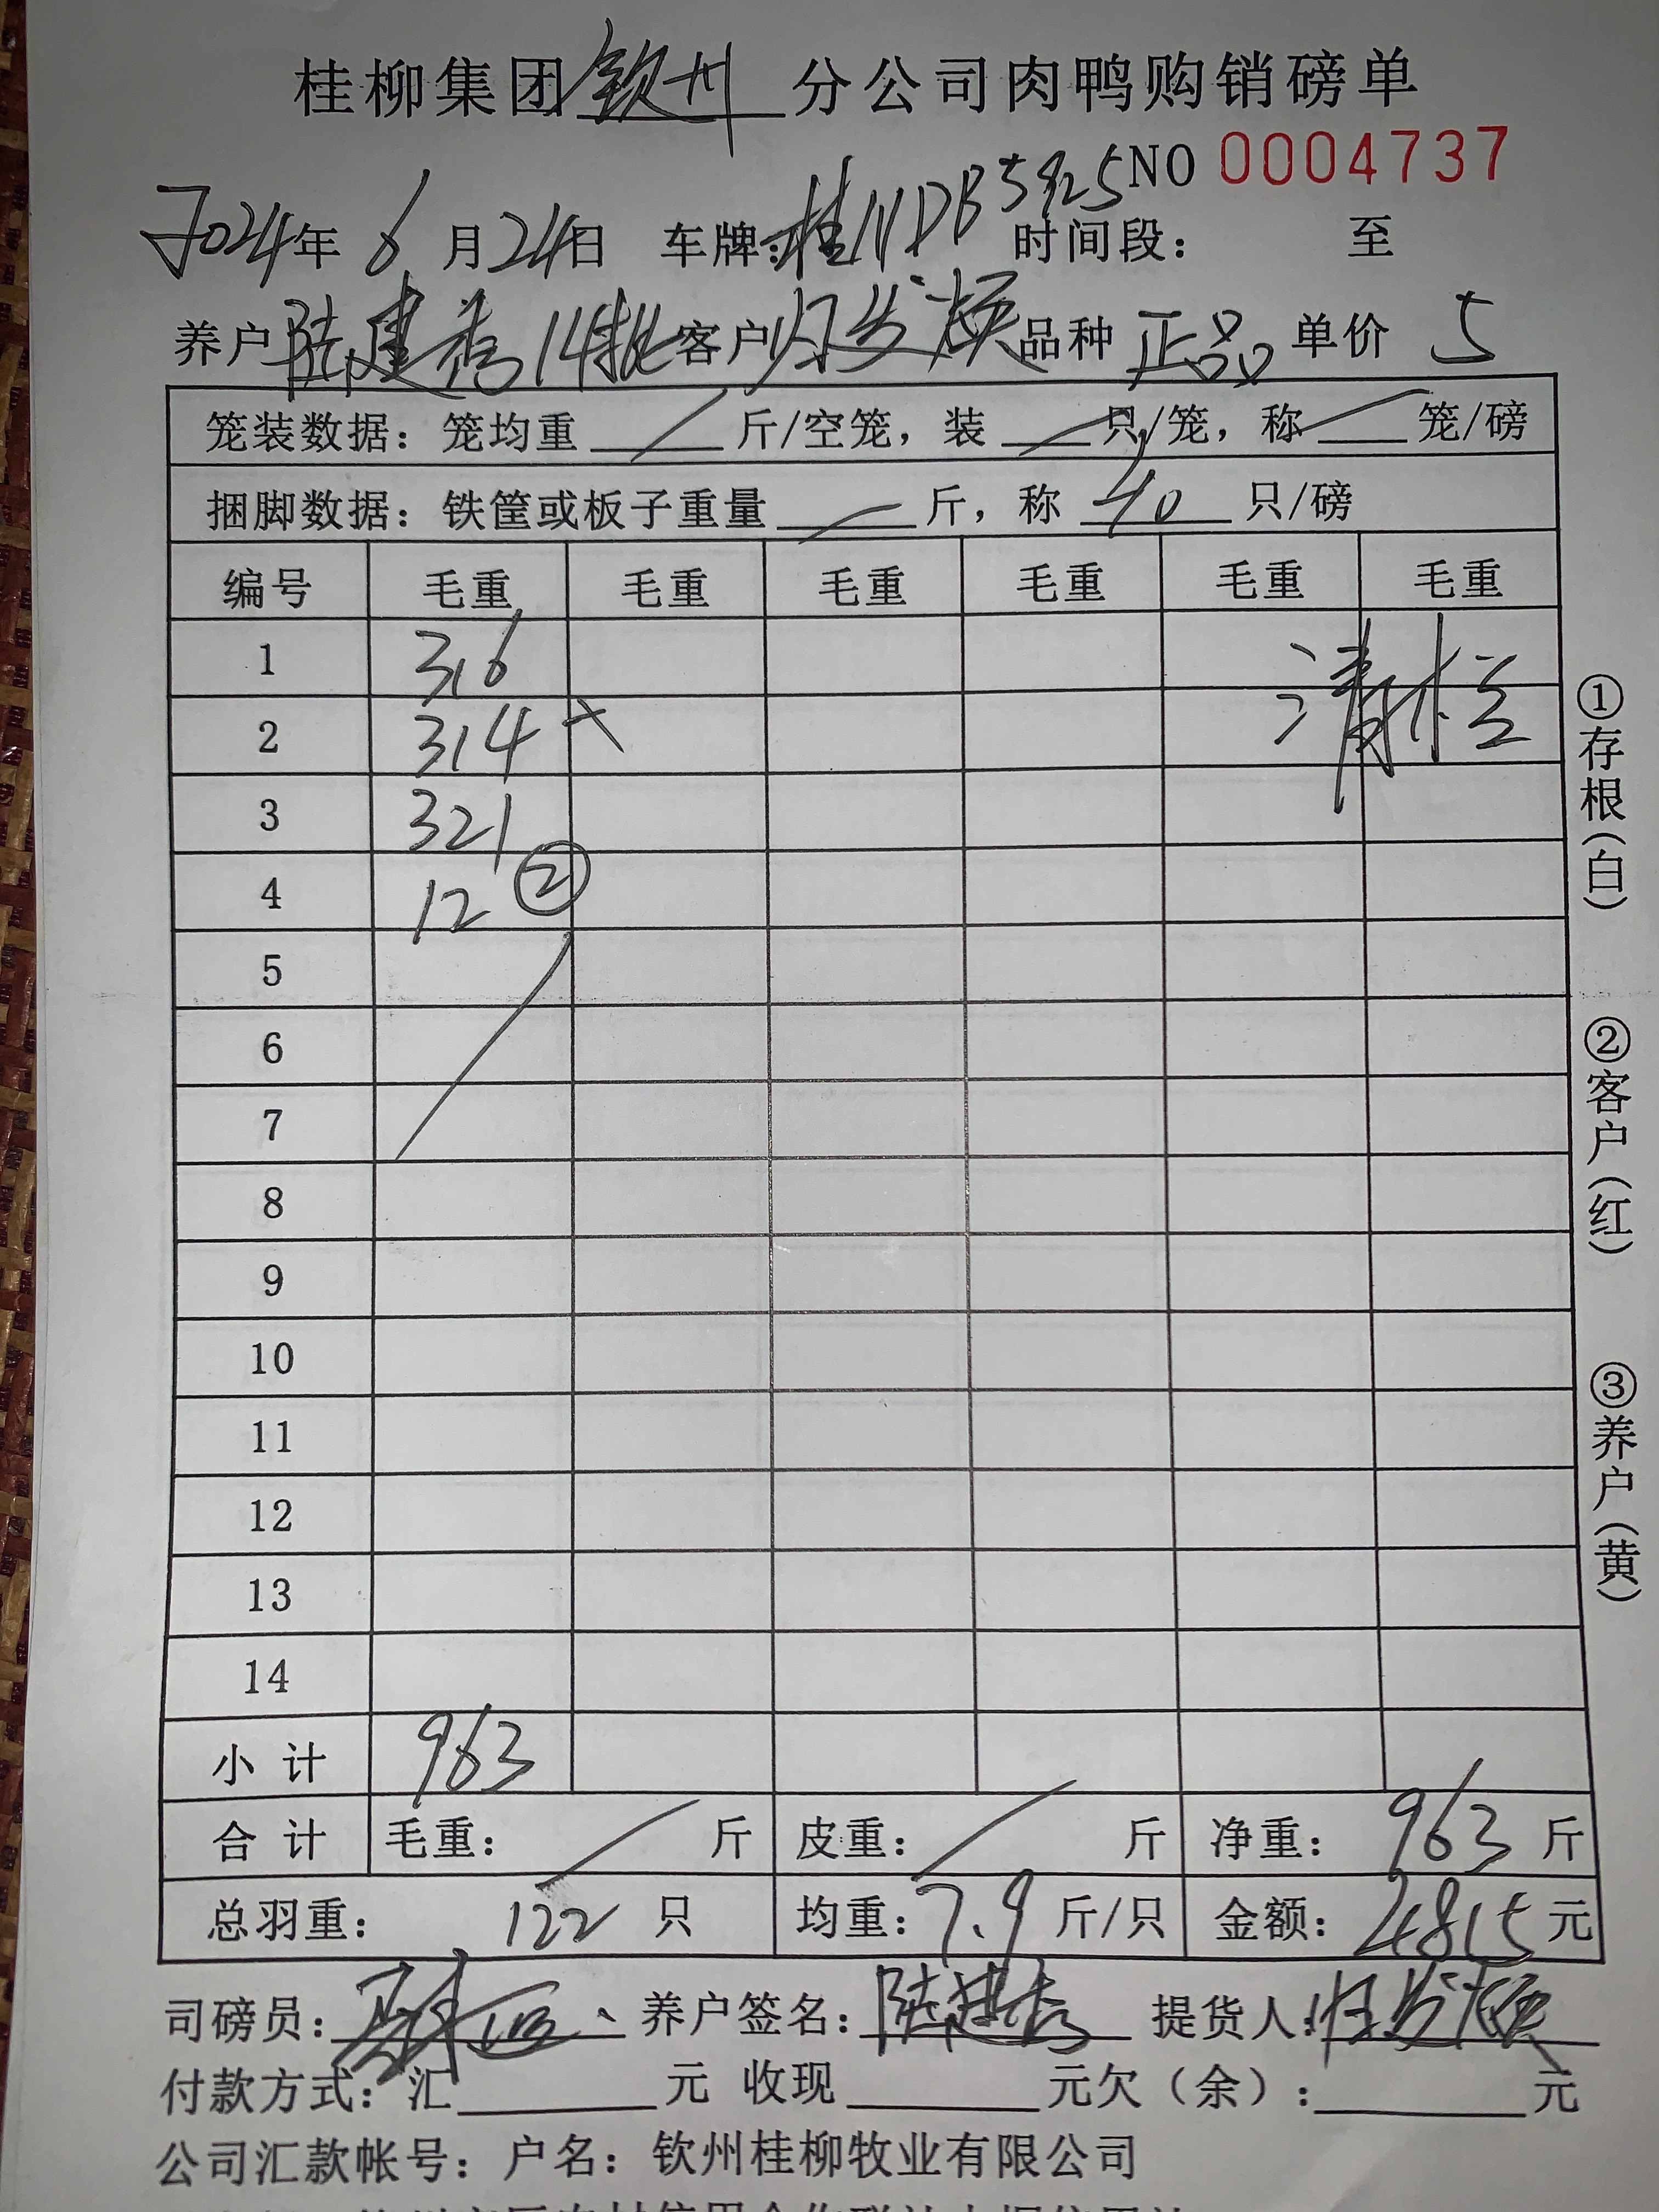 桂柳集团钦州分公司肉鸭购销磅单
NO 0004737
2024年6月24日 车牌:桂NDB5925 时间段: 至
养户陆建秀14批客户 品种正品 单价5
笼装数据:笼均重 斤/空笼,装 只/笼,称 笼/磅
捆脚数据:铁筐或板子重量 斤,称 40 只/磅
编号 毛重 毛重 毛重 毛重 毛重 毛重
1 316 清栏
2 314
3 321
4 12 ②
5
6
7
8
9
10
11
12
13
14
小计 963
合计 毛重: 斤 皮重: 斤 净重: 963 斤
总羽重: 122 只 均重:7.9 斤/只 金额:4815元
司磅员: 养户签名:陆建秀 提货人:
付款方式:汇 元 收现 元欠(余): 元
公司汇款帐号:户名:钦州桂柳牧业有限公司
①存根(白)
②客户(红)
③养户(黄)